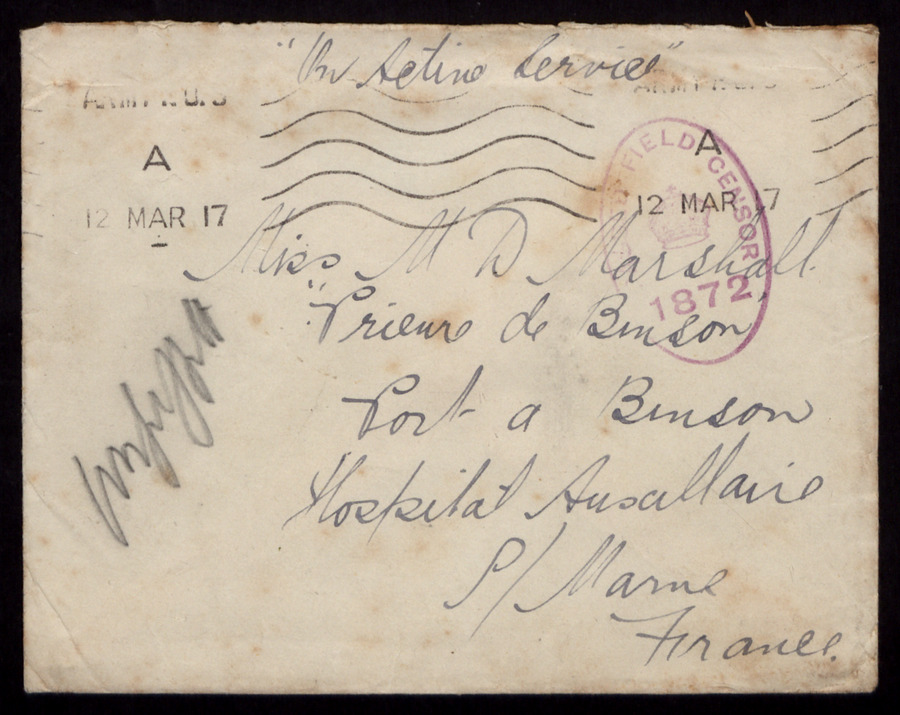 "On Active Service"
ARMY P.O. 3
A
12 MAR 17
A
12 MAR 17
FIELD CENSOR
1872
Miss M D Marshall
"Prieure de Binson"
Port a Binson
Hospital Auxillaire
S/ Marne
France.